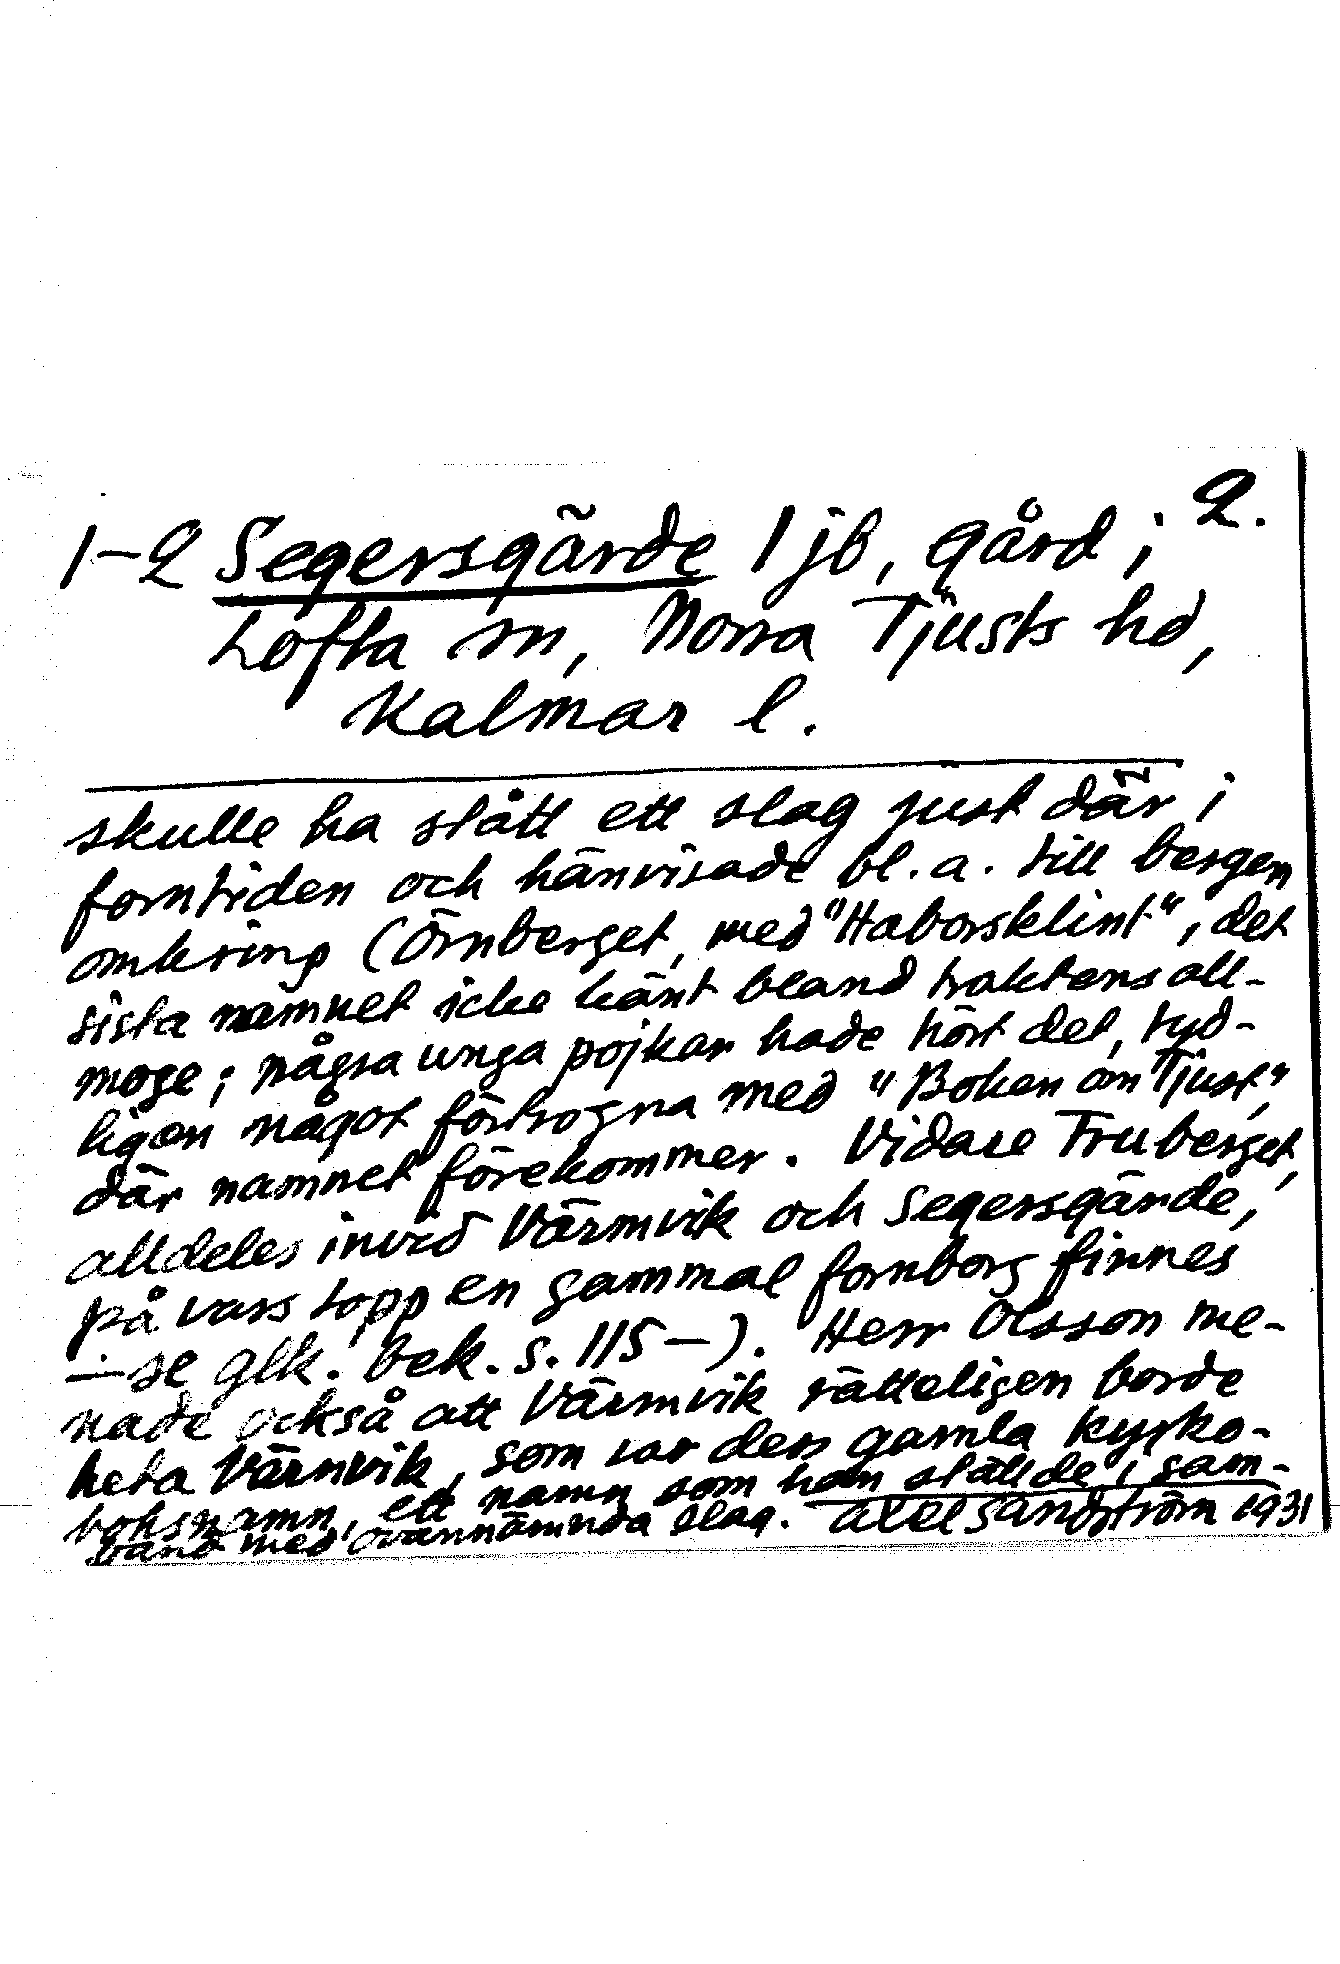 2.
1-2 Segersgärde 1 jb, gård;
Lofta sn, Norra Tjusts hd,
Kalmar l.
skulle ha stått ett slag just där i
forntiden och hänvisade bl. a. till bergen
omkring (Örnberget, med "Haborsklint", det
sista namnet icke känt bland traktens all-
moge; några unga pojkar hade hört det, tyd-
ligen något förtrogna med "Boken om Tjust",
där namnet förekommer. Vidare Fruberget,
alldeles invid Värmvik och Segersgärde,
på vars topp en gammal fornborg finnes
- se glk. bek. s. 115 -). Herr Olsson me-
nade också att Värmvik rätteligen borde
heta Värnvik, som var den gamla kyrko-
boksnamn, ett namn som han ställde i sam-
band med ovannämnda slag. Axel Sandström 1931